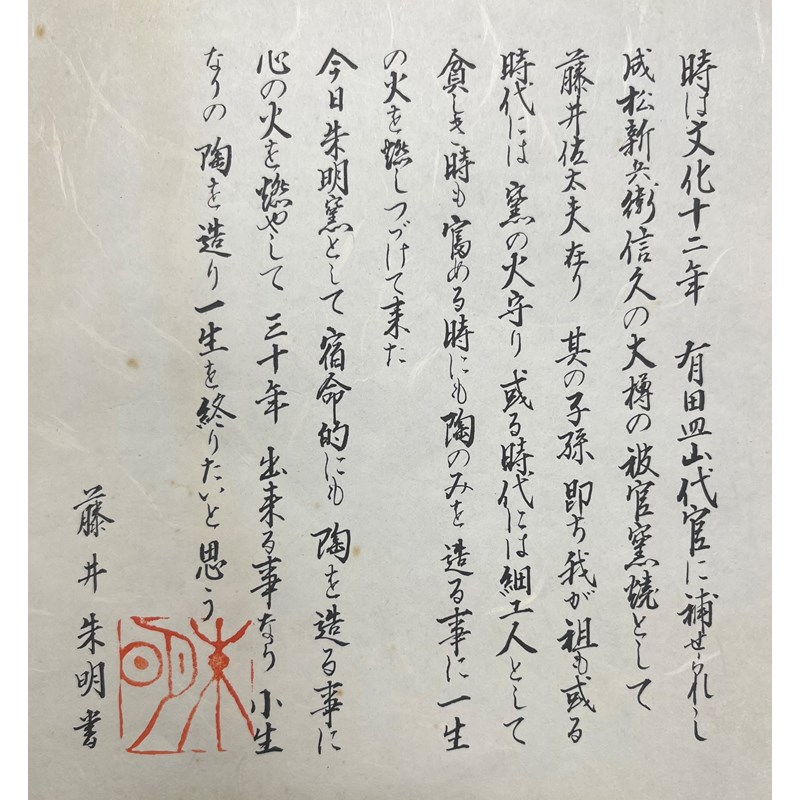 時は文化十二年 有田皿山代官に補せられし
成松新兵衛信久の大樽の被官窯焼として
藤井佐太夫在り 其の子孫 即ち我が祖も或る
時代には 窯の火守り 或る時代には細工人として
貧しき時も富める時にも陶のみを造る事に一生
の火を燃しつづけて来た
今日朱明窯として宿命的にも 陶を造る事に
心の火を燃やして 三十年 出来る事なら 小生
なりの 陶を造り一生を終りたいと思う
藤井朱明書
朱明